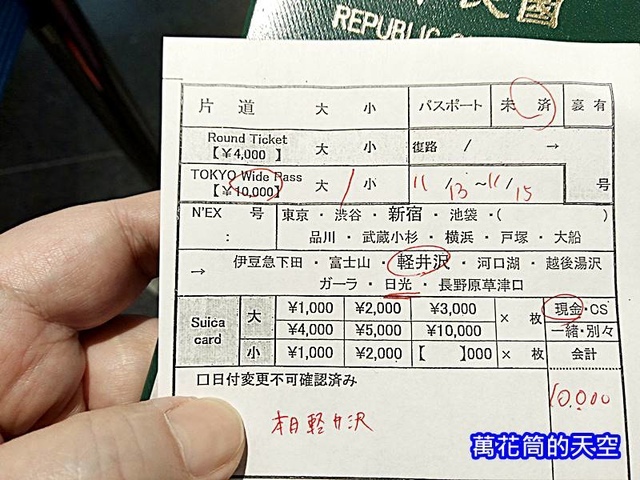 民國
REPUBLIC
片 道 大 小 パスポート 未 済 裏 有
Round Ticket
【¥4,000 】 大 小 復路 / →
TOKYO Wide Pass
【¥10,000】 大 / 小 11/13~11/15 号
N'EX 号 東京・渋谷・新宿・池袋・( )
: 品川・武蔵小杉・横浜・戸塚・大船
→ 伊豆急下田・富士山・軽井沢・河口湖・越後湯沢
ガーラ・日光・長野原草津口
Suica card 大 ¥1,000 ¥2,000 ¥3,000 × 枚 現金・CS
¥4,000 ¥5,000 ¥10,000 一緒・別々
小 ¥1,000 ¥2,000 【 】000 × 枚 会計
口日付変更不可確認済み
10,000
本日軽井沢
萬花筒的天空